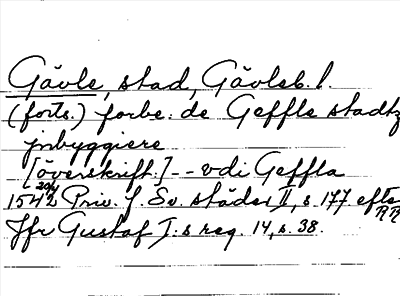 Gävle, stad, Gävleb. l.
(forts.) forbe: de Geffle stadtz
jnbyggiere
[överskrift:] -- vdi Geffla
1542 20/4 Priv. f. Sv. städer II, s. 177 efts
RR
Jfr Gustaf I:s reg. 14, s. 38.